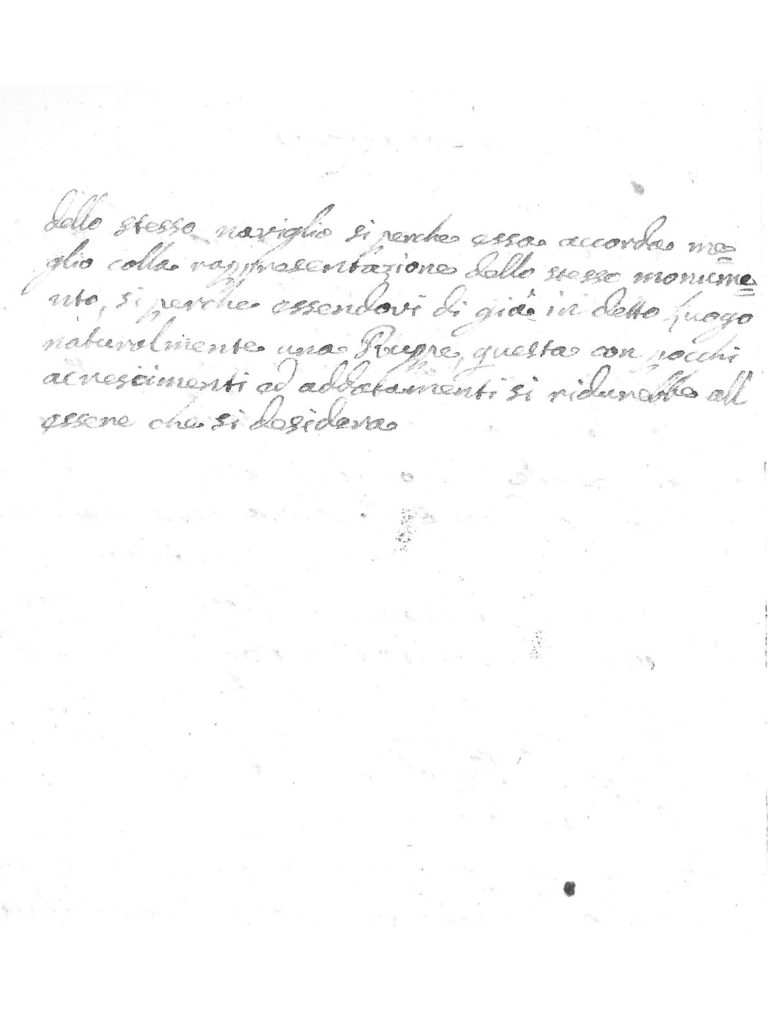 dello stesso naviglio si perche essa accorda me=
glio colla rappresentazione dello stesso monume=
nto, si perche essendovi di già in detto luogo
naturalmente una Ruppe, questa con pocchi
acrescimenti ed addatamenti si ridurebbe all'
essere che si desidera